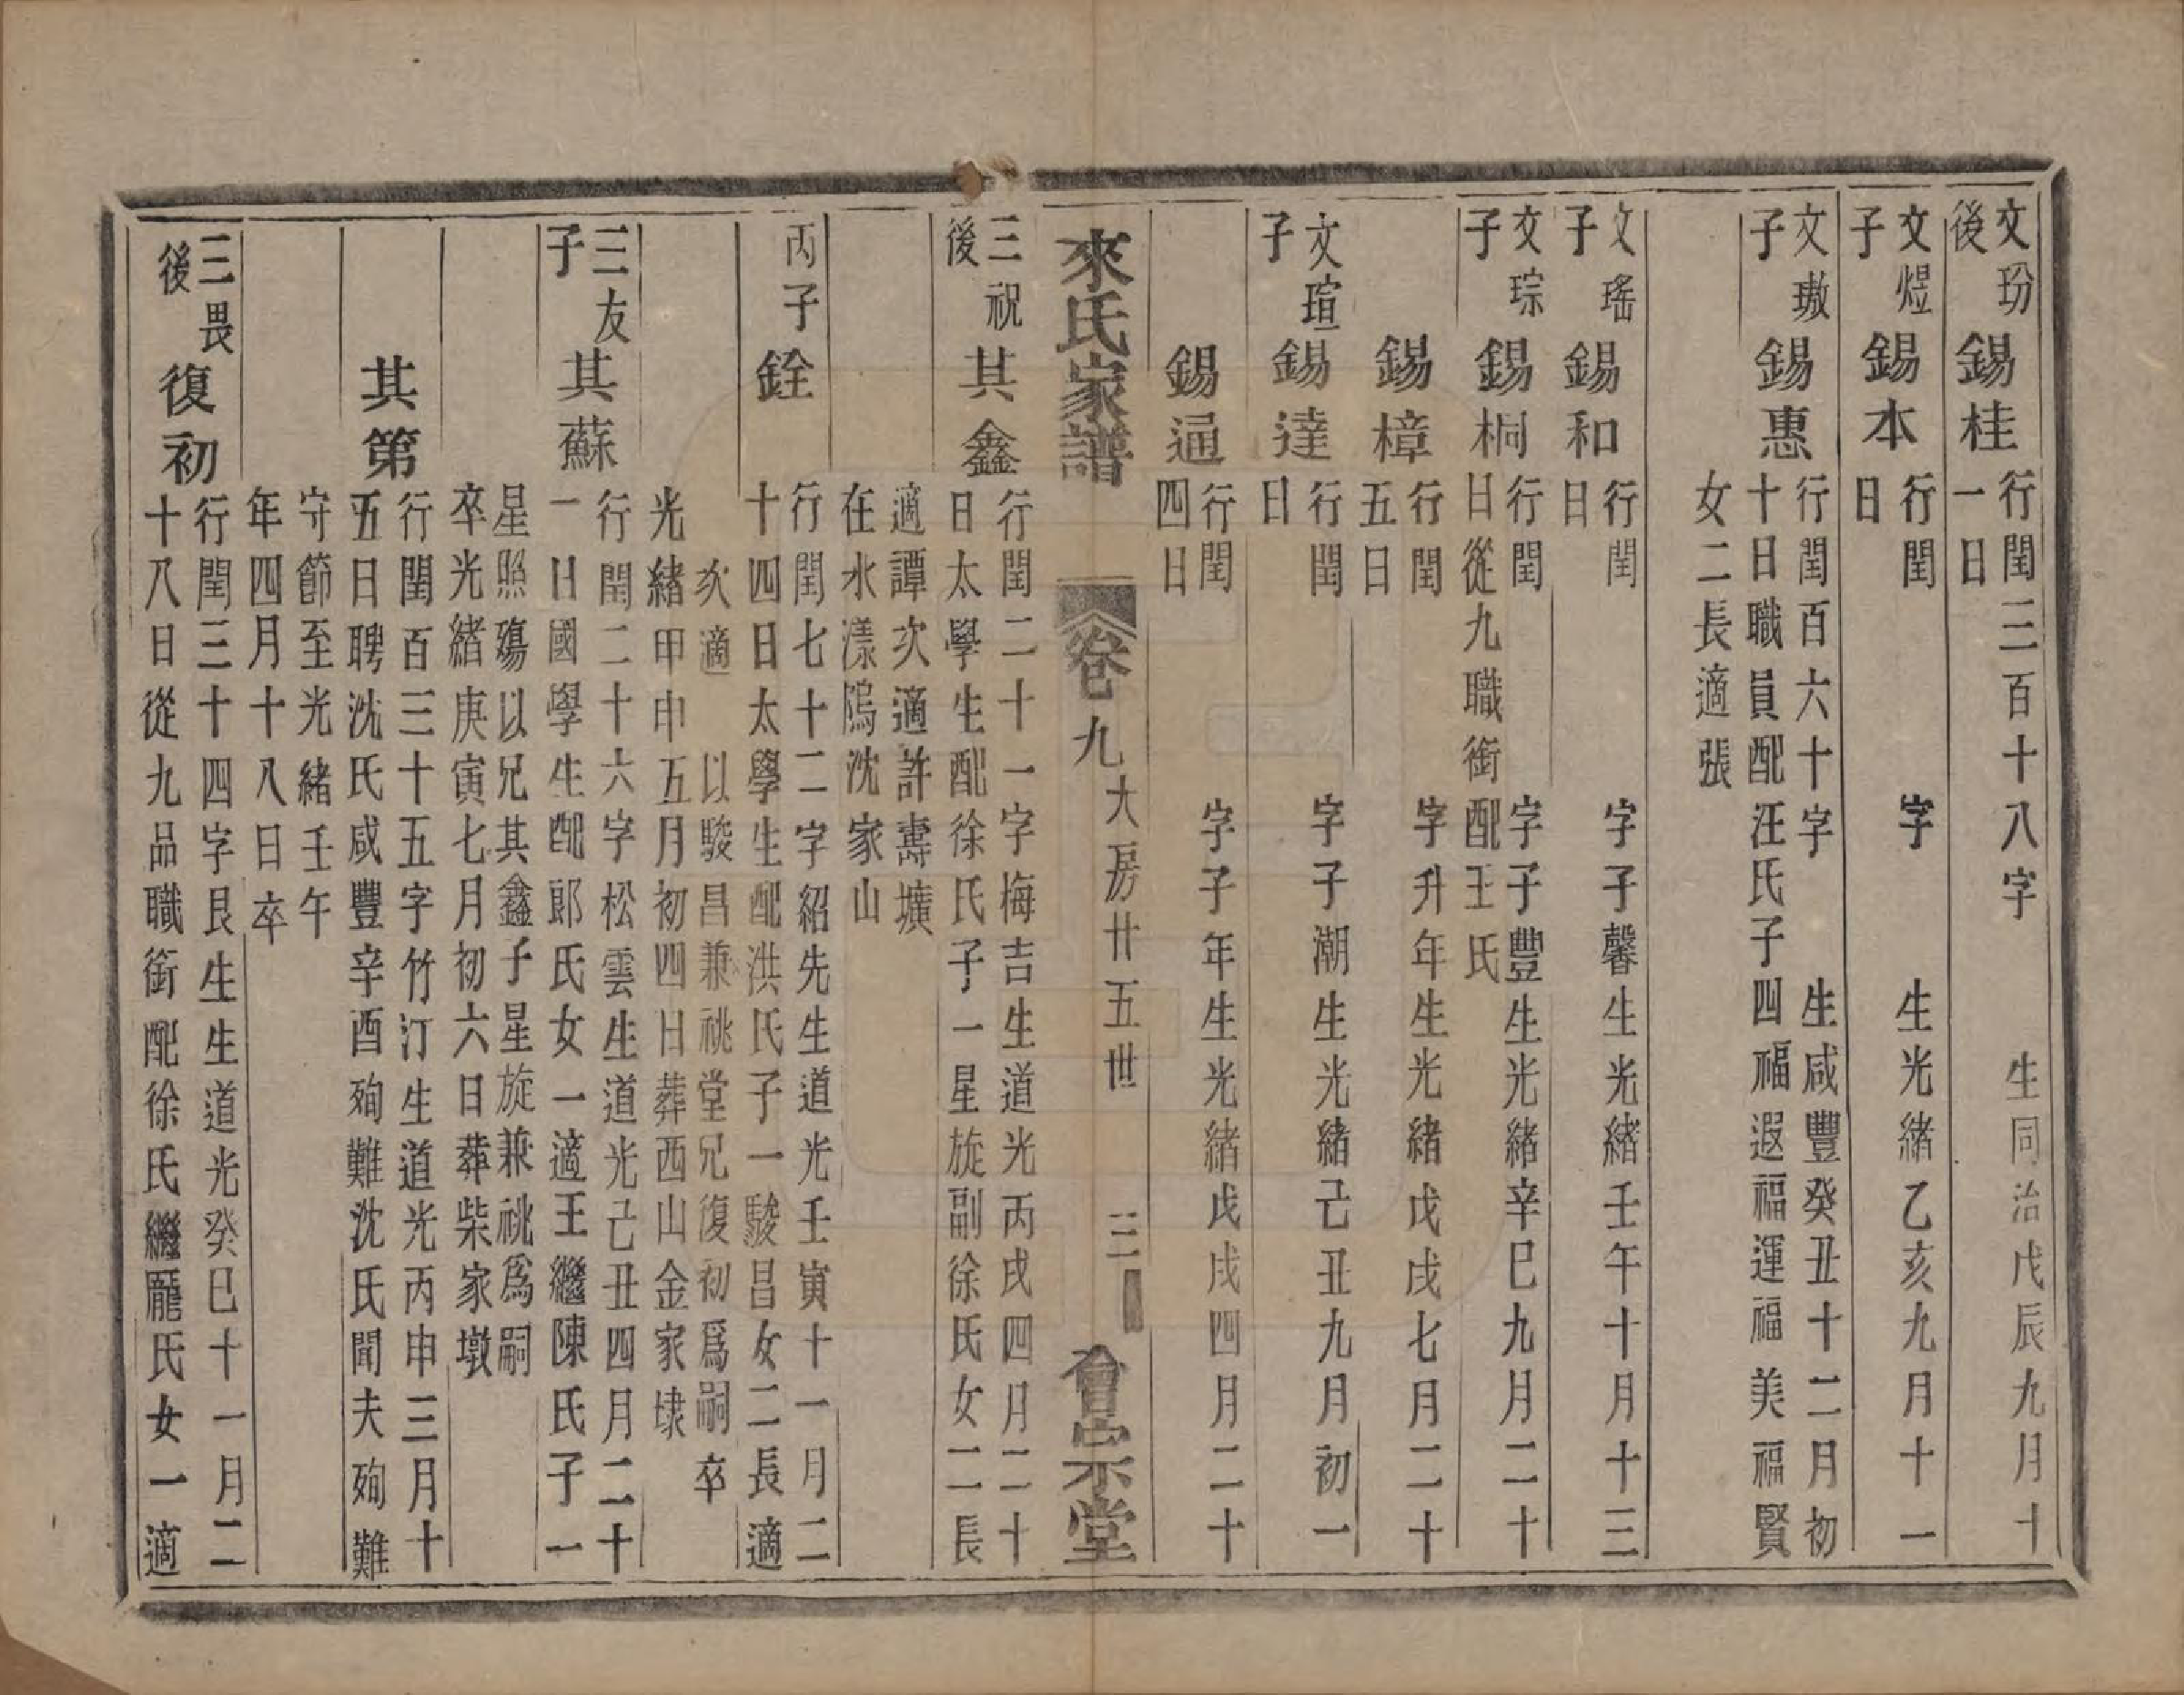 文玢
後
錫桂
行閏三百十八字 生同治戊辰九月十
一日
文煜
子
錫本
行閏 字 生光緒乙亥九月十一
日
文璈
子
錫惠
行閏百六十字 生咸豐癸丑十二月初
十日職員配汪氏子四福遐福運福美福賢
女二長適張
文瑤
子
錫和
行閏 字子馨生光緒壬午十月十三
日
文琮
子
錫桐
行閏 字子豐生光緒辛巳九月二十
日從九職銜配王氏
錫樟
行閏 字升年生光緒戊戌七月二十
五日
文瑄
子
錫達
行閏 字子潮生光緒己丑九月初一
日
錫通
行閏 字子年生光緒戊戌四月二十
四日
來氏家譜 卷九 大房廿五世 三 會宗堂
三祝
後
其鑫
行閏二十一字梅吉生道光丙戌四月二十
日太學生配徐氏子一星旋副徐氏女二長
適譚次適許壽壙
在水漾隖沈家山
丙子
銓
行閏七十二字紹先生道光壬寅十一月二
十四日太學生配洪氏子一駿昌女二長適
次適 以駿昌兼祧堂兄復初爲嗣卒
光緒甲申五月初四日葬西山金家埭
三友
子
其蘇
行閏二十六字松雲生道光己丑四月二十
一日國學生配郎氏女一適王繼陳氏子一
星照殤以兄其鑫子星旋兼祧爲嗣
卒光緒庚寅七月初六日葬柴家墩
其第
行閏百三十五字竹汀生道光丙申三月十
五日聘沈氏咸豐辛酉殉難沈氏聞夫殉難
守節至光緒壬午
年四月十八日卒
三畏
後
復初
行閏三十四字艮生生道光癸巳十一月二
十八日從九品職銜配徐氏繼龎氏女一適